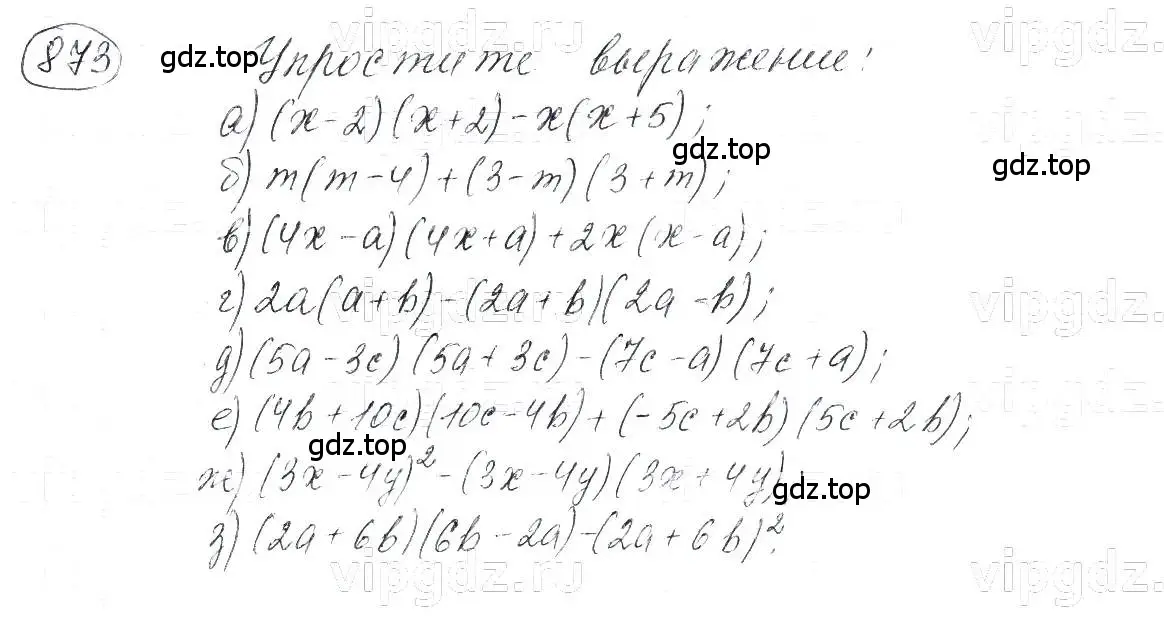 873 Упростите выражение:
а) (x-2)(x+2)-x(x+5);
б) m(m-4)+(3-m)(3+m);
в) (4x-a)(4x+a)+2x(x-a);
г) 2a(a+b)-(2a+b)(2a-b);
д) (5a-3c)(5a+3c)-(7c-a)(7c+a);
е) (4b+10c)(10c-4b)+(-5c+2b)(5c+2b);
ж) (3x-4y)²-(3x-4y)(3x+4y)
з) (2a+6b)(6b-2a)-(2a+6b)².
gdz.top
gdz.top
gdz.top
gdz.top
gdz.top
vipgdz.ru
vipgdz.
vipgdz.ru
vipgdz.
vipgdz.ru
vipgdz.